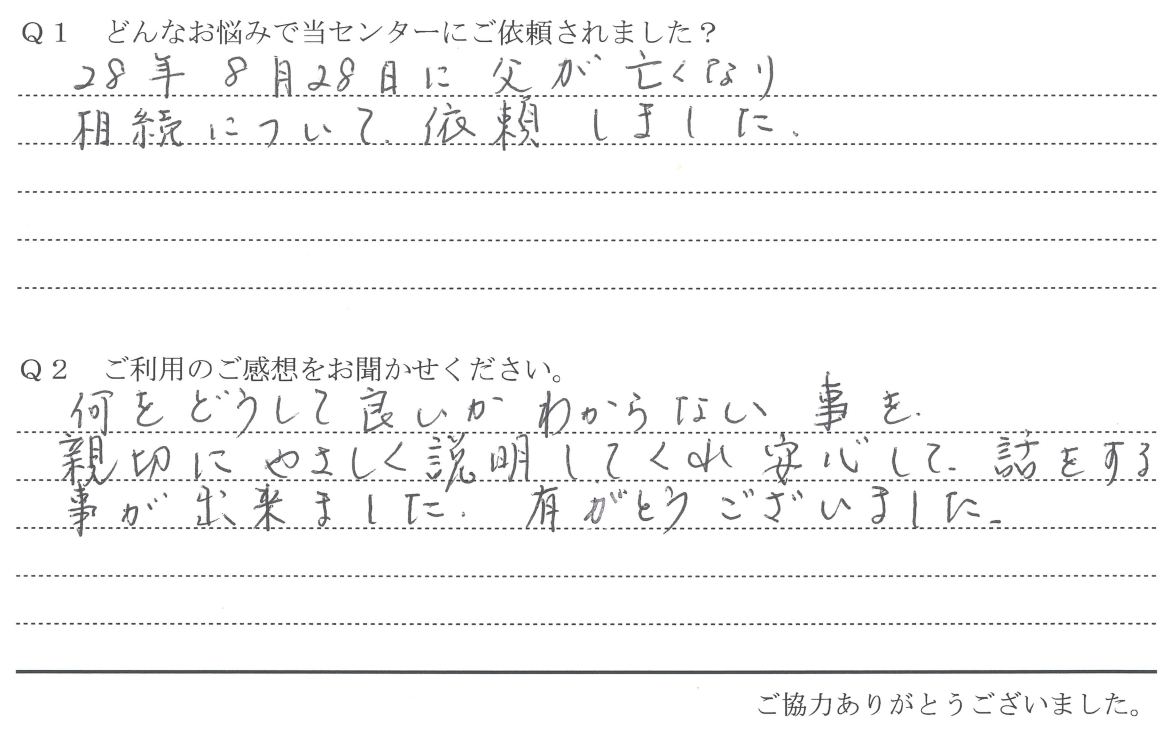 Ｑ１　どんなお悩みで当センターにご依頼されました？
28年 8月28日に 父が 亡くなり
相続について、依頼 しました.
Ｑ２　ご利用のご感想をお聞かせください。
何を どうして 良いか わからない 事を.
親切に やさしく 説明してくれ 安心して、話をする
事が 出来ました. 有がとうございました.
ご協力ありがとうございました。